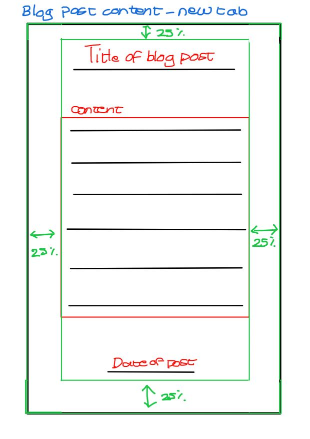 Blog post content - new tab
25%
Title of blog post
content
25%
25%
Date of post
25%